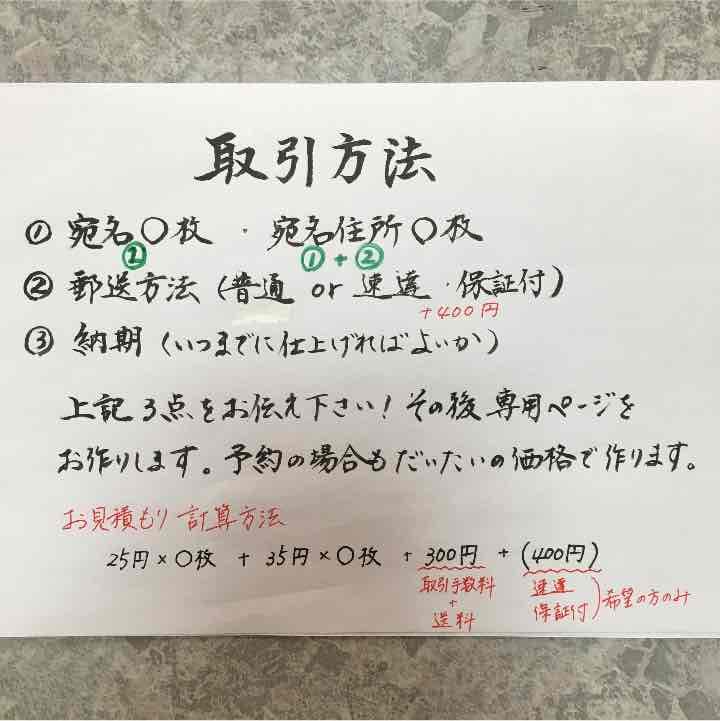 取引方法
① 宛名〇枚 ・ 宛名住所〇枚
② ①+②
② 郵送方法 (普通 or 速達・保証付)
+400円
③ 納期 (いつまでに仕上げればよいか)
上記3点をお伝え下さい!その後専用ページを
お作りします。予約の場合もだいたいの価格で作ります。
お見積もり計算方法
25円×〇枚 + 35円×〇枚 + 300円 + (400円)
取引手数料 速達
+ 保証付)希望の方のみ
送料